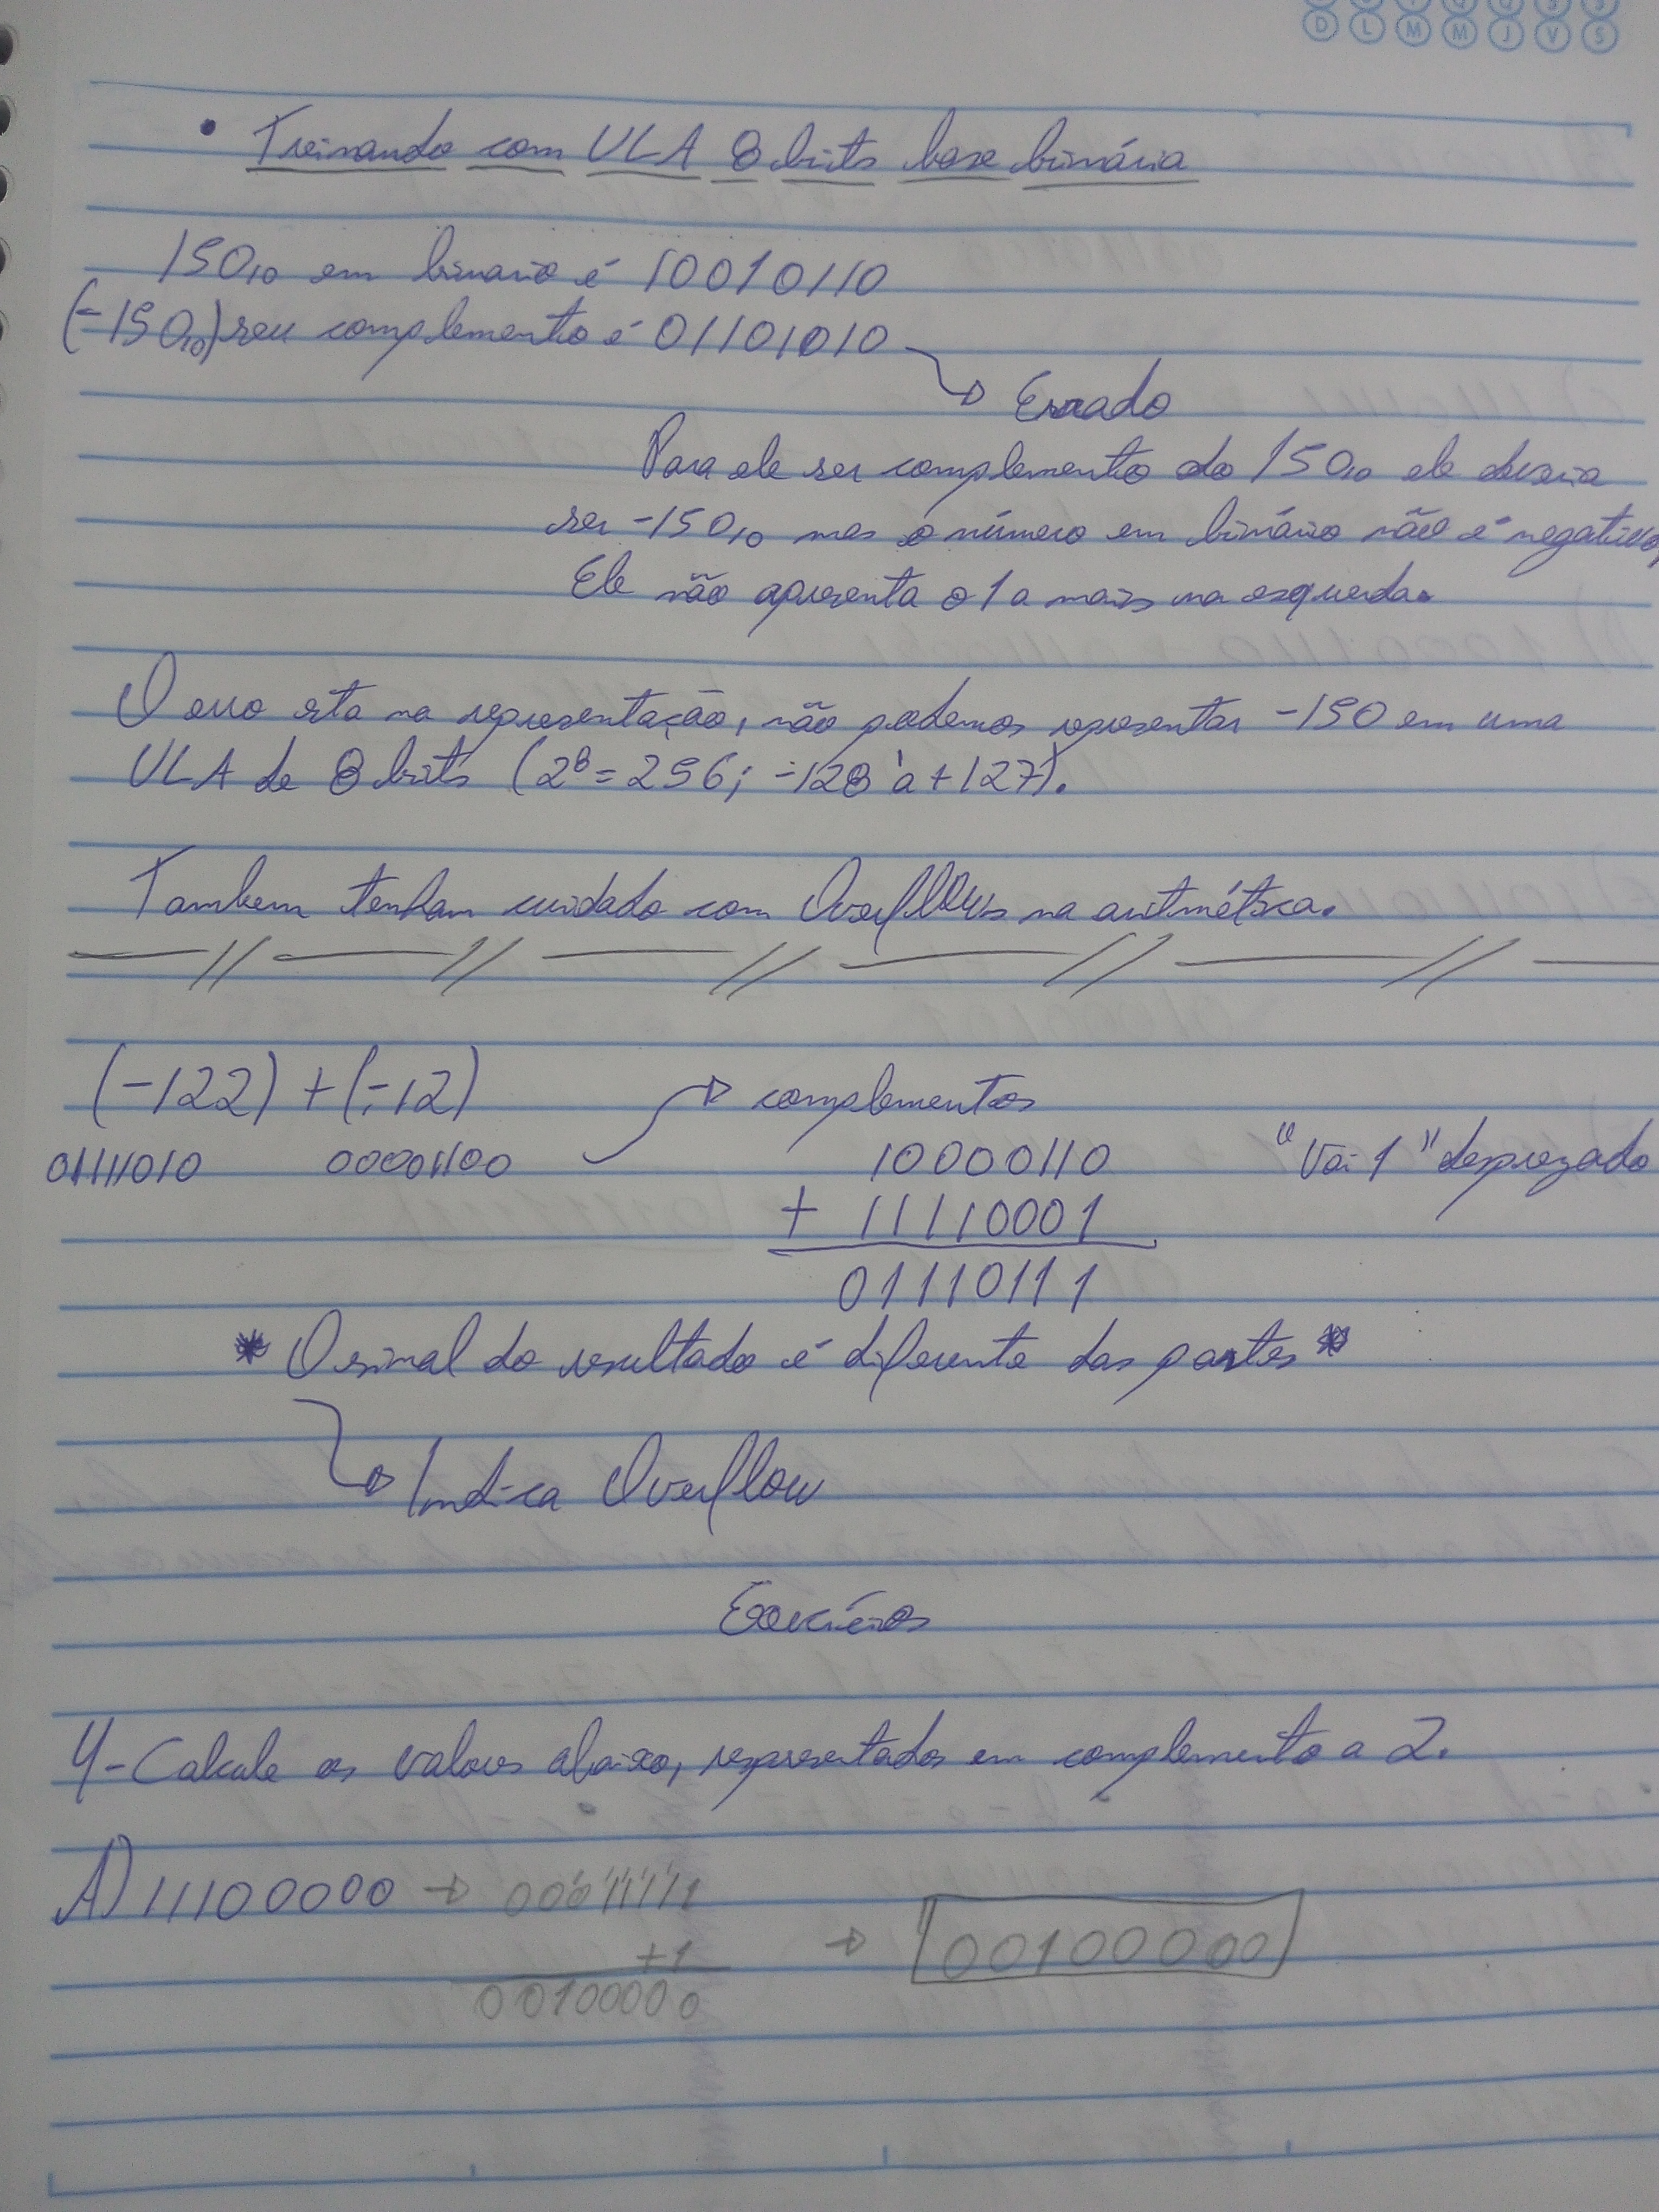 D L M M J V S
• Treinando com ULA 8 bits base binária
150₁₀ em binario é 10010110
(-150₁₀) seu complemento é 01101010
→ Errado
Para ele ser complemento do 150₁₀ ele deveria
ser -150₁₀ mas o número em binário não é negativo,
Ele não apresenta o 1 a mais na esquerda.
O erro esta na representação, não podemos representar -150 em uma
ULA de 8 bits (2⁸ = 256; -128 à +127).
Tambem tenham cuidado com Overflows na aritmética.
(-122) + (-12) → complementos
01111010 00001100 10000110 "Vai 1" desprezado
+ 11110001
01110111
* O sinal do resultado é diferente das partes *
→ Indica Overflow
Exercícios
4- Calcule os valores abaixo, representados em complemento a 2.
A) 11100000 → 00011111
+1 → 00100000
00100000